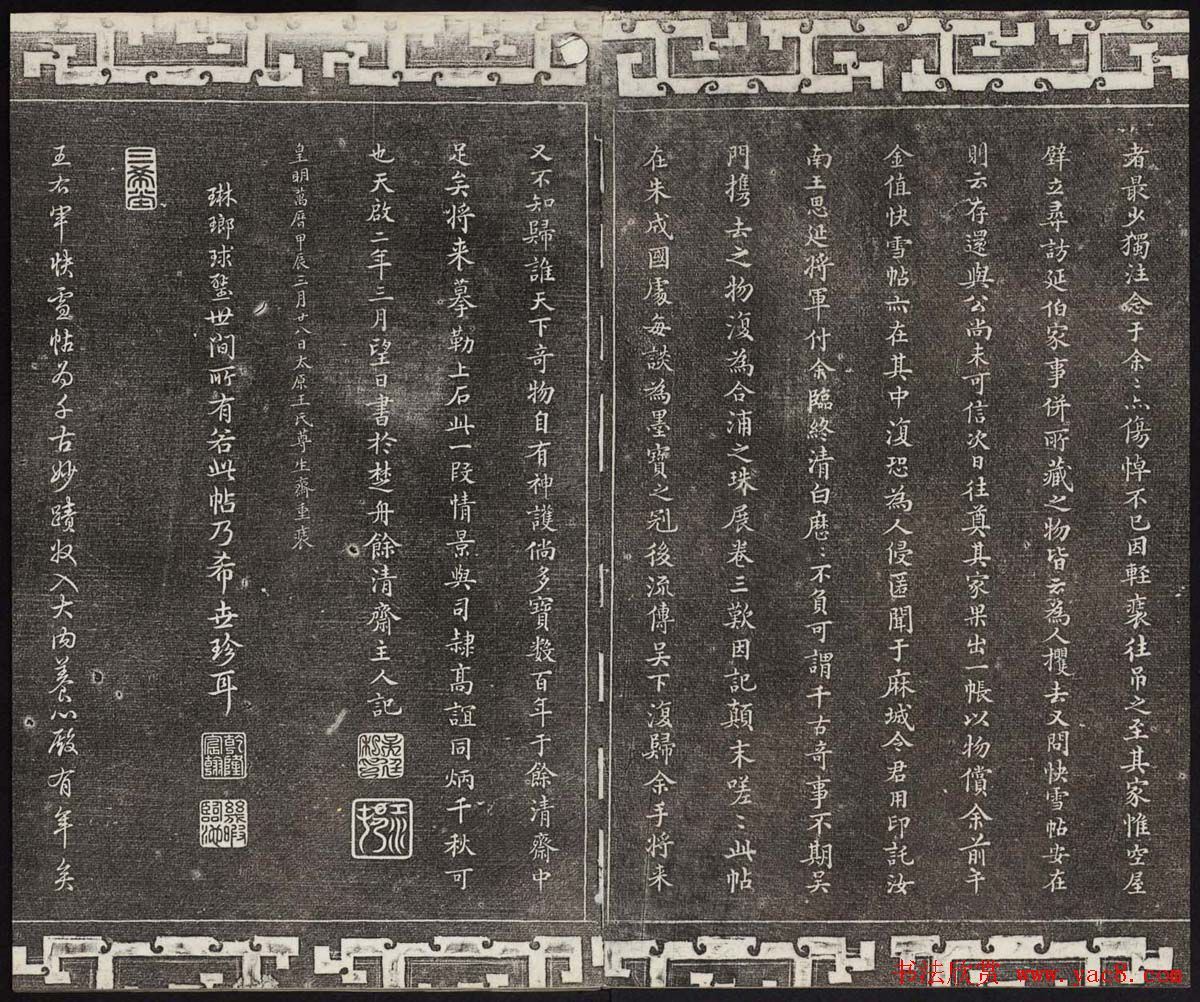 者最少獨注念于余〻亦傷悼不已因輕裘往吊之至其家惟空屋
壁立尋訪延伯家事併所藏之物皆云為人攫去又問快雪帖安在
則云存還與公尚未可信次日往奠其家果出一帳以物償余前千
金值快雪帖亦在其中復恐為人侵匿聞于麻城令君用印託汝
南王思延將軍付余臨終清白歷〻不負可謂千古奇事不期吳
門携去之物復為合浦之珠展卷三歎因記顛末嗟〻此帖
在朱成國處每談為墨寶之冠後流傳吳下復歸余手將来
又不知歸誰天下奇物自有神護倘多寶數百年于餘清齋中
足矣將来摹勒上石此一段情景與司隸高誼同炳千秋可
也天啟二年三月望日書於楚舟餘清齋主人記
吳廷私印
江村
皇明萬曆甲辰二月廿八日太原王氏尊生齋重裝
琳瑯球璧世間所有若此帖乃希世珍耳
乾隆宸翰
幾暇臨池
三希堂
王右軍快雪帖為千古妙蹟收入大內養心殿有年矣
书法欣赏 www.yac8.com